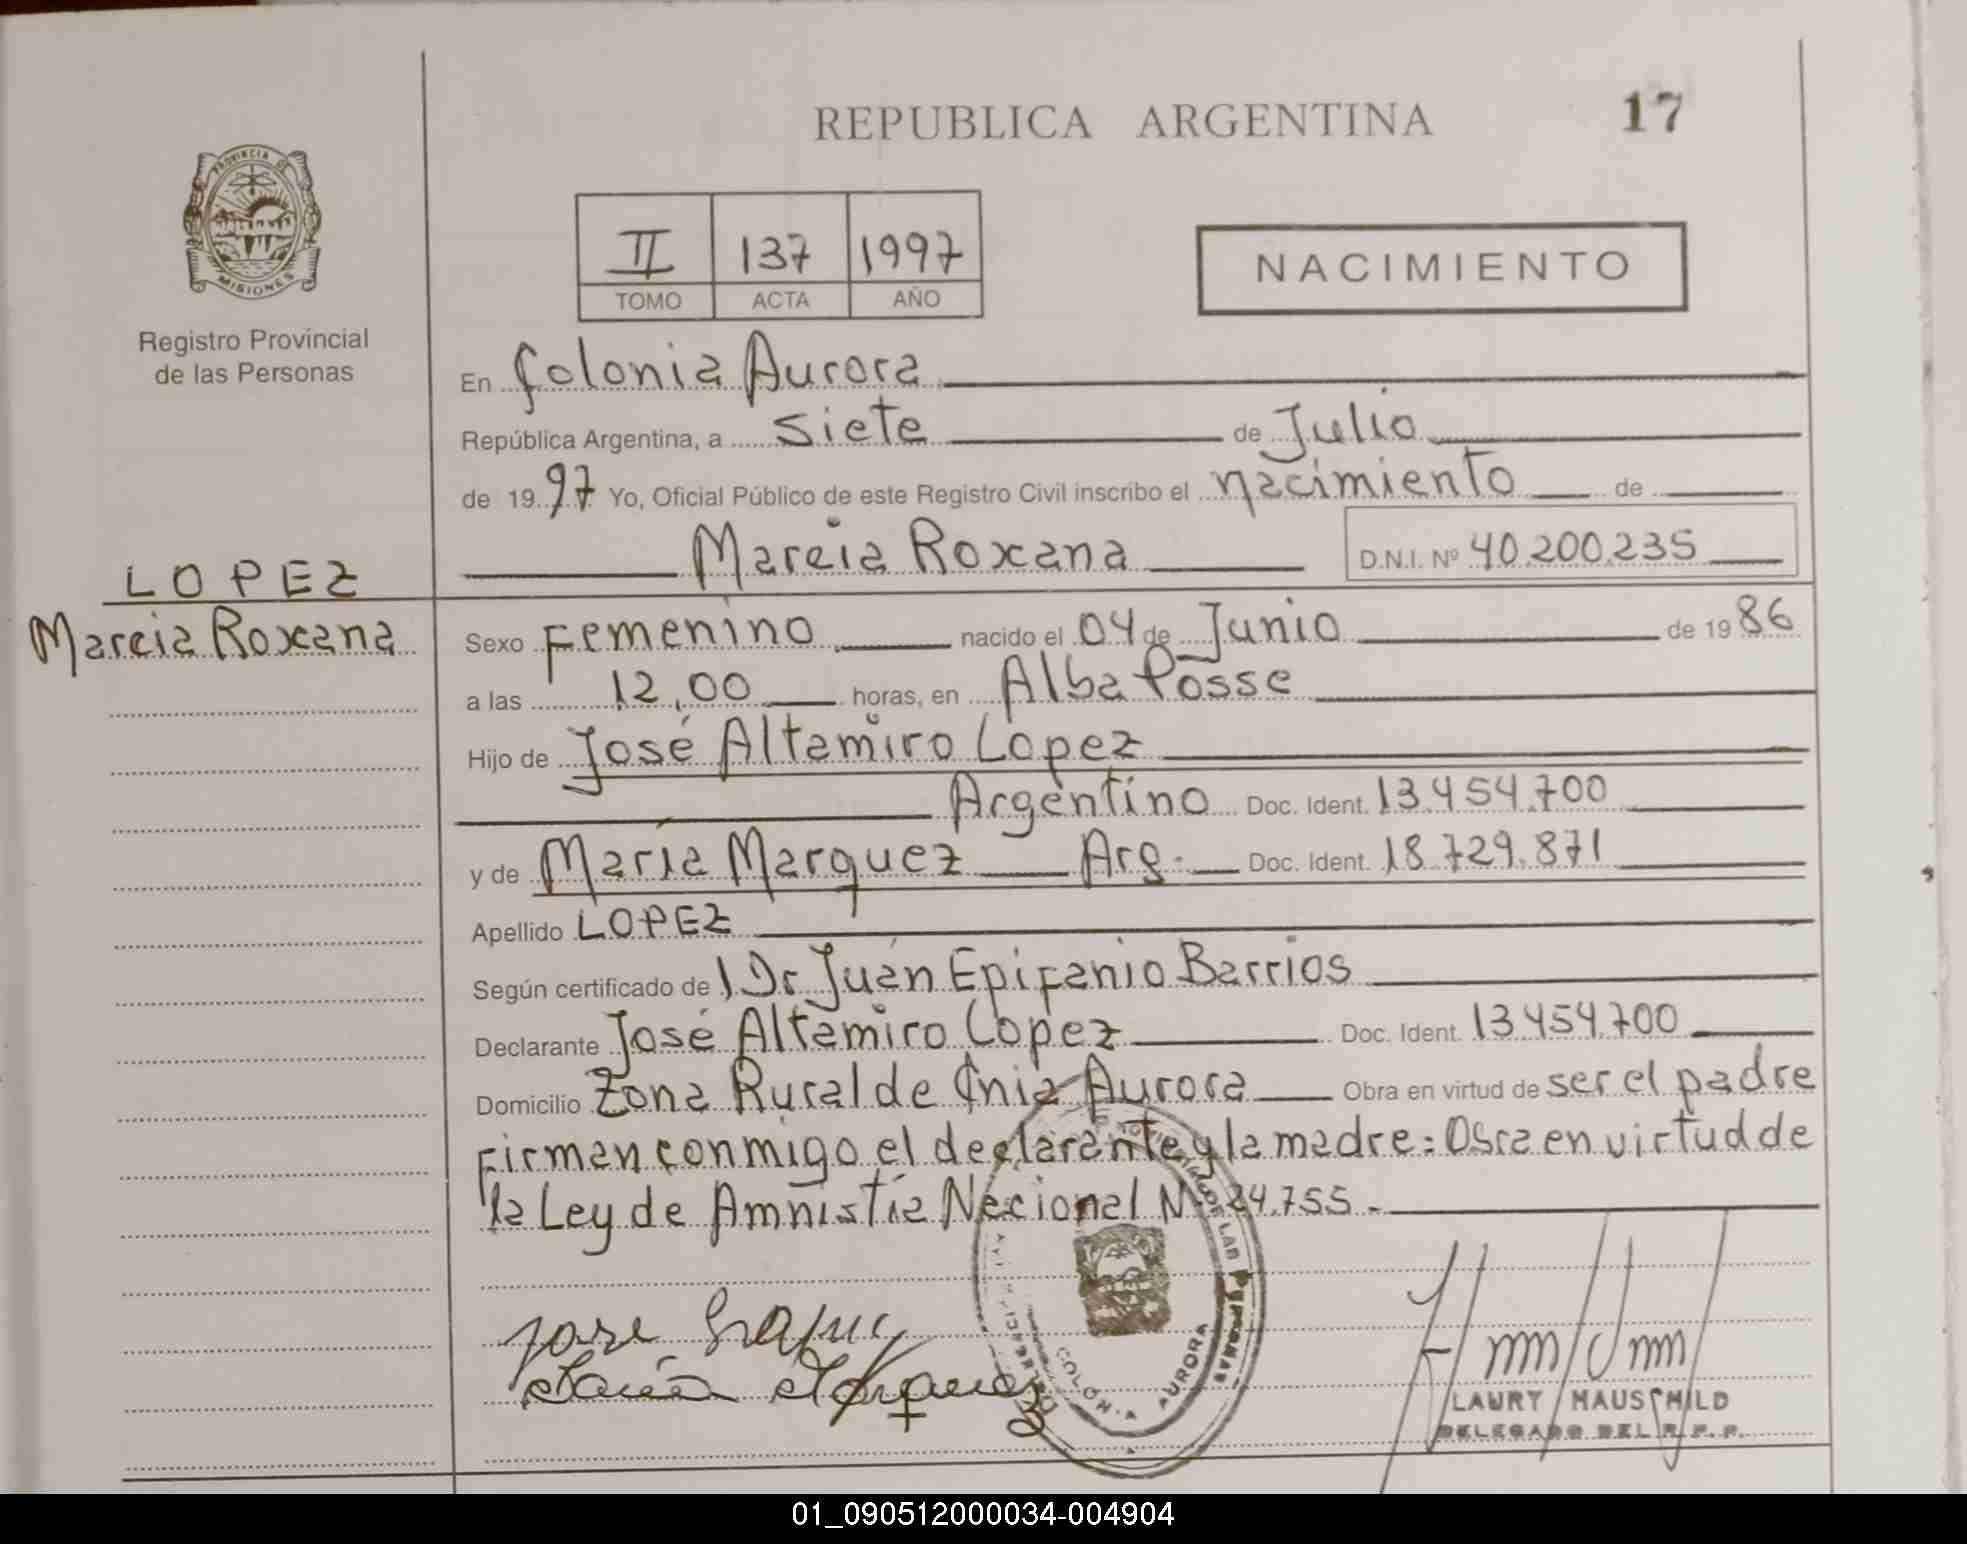 REPUBLICA ARGENTINA
17
PROVINCIA DE
MISIONES
Registro Provincial
de las Personas
II 137 1997
TOMO ACTA AÑO
NACIMIENTO
En Colonia Aurora
República Argentina, a siete de Julio
de 1997 Yo, Oficial Público de este Registro Civil inscribo el nacimiento de
Marcia Roxana D.N.I. Nº 40.200.235
LOPEZ
Marcia Roxana
Sexo Femenino nacido el 04 de Junio de 1986
a las 12,00 horas, en Alba Posse
Hijo de José Altamiro Lopez
Argentino Doc. Ident. 13.454.700
y de María Marquez Arg. Doc. Ident. 18.729.871
Apellido LOPEZ
Según certificado de l Dr Juan Epifanio Barrios
Declarante José Altamiro Lopez Doc. Ident. 13.454.700
Domicilio Zona Rural de Cnia Aurora Obra en virtud de ser el padre
Firman conmigo el declarante y la madre: Obra en virtud de
la Ley de Amnistía Nacional Nº 24.755.-
COLONIA AURORA
LAURY HAUSCHILD
DELEGADO DEL R.P.P.
01_090512000034-004904